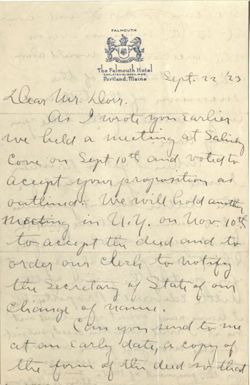 FALMOUTH
The Falmouth Hotel
Portland, Maine
Sept. 22 '23
Dear Mr. Dorr.
As I wrote you earlier
we held a meeting at Salisbury
Cove on Sept 10th and voted to
accept your proposition as
outlined. We will hold another
meeting in N.Y. on Nov 10th
to accept the deed and to
order our Clerk to notify
the Secretary of State of our
change of name.
Can you send to me
at an early date, a copy of
the form of the deed so that